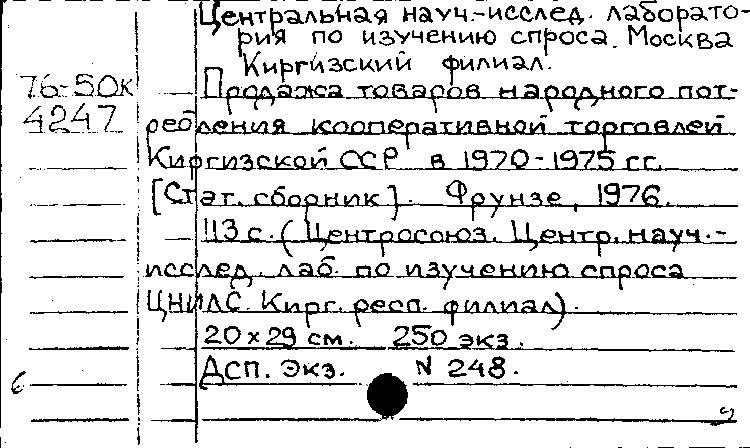 Центральная науч.-исслед. лаборато-
рия по изучению спроса. Москва
Киргизский филиал.
76-50к
4247
Продажа товаров народного пот-
ребления кооперативной торговлей
Киргизской ССР в 1970-1975 гг.
[Стат. сборник]. Фрунзе, 1976.
113 с. (Центросоюз. Центр. науч.-
исслед. лаб. по изучению спроса
ЦНИЛС. Кирг. респ. филиал).
20 x 29 см. 250 экз.
Дсп. Экз. N 248.